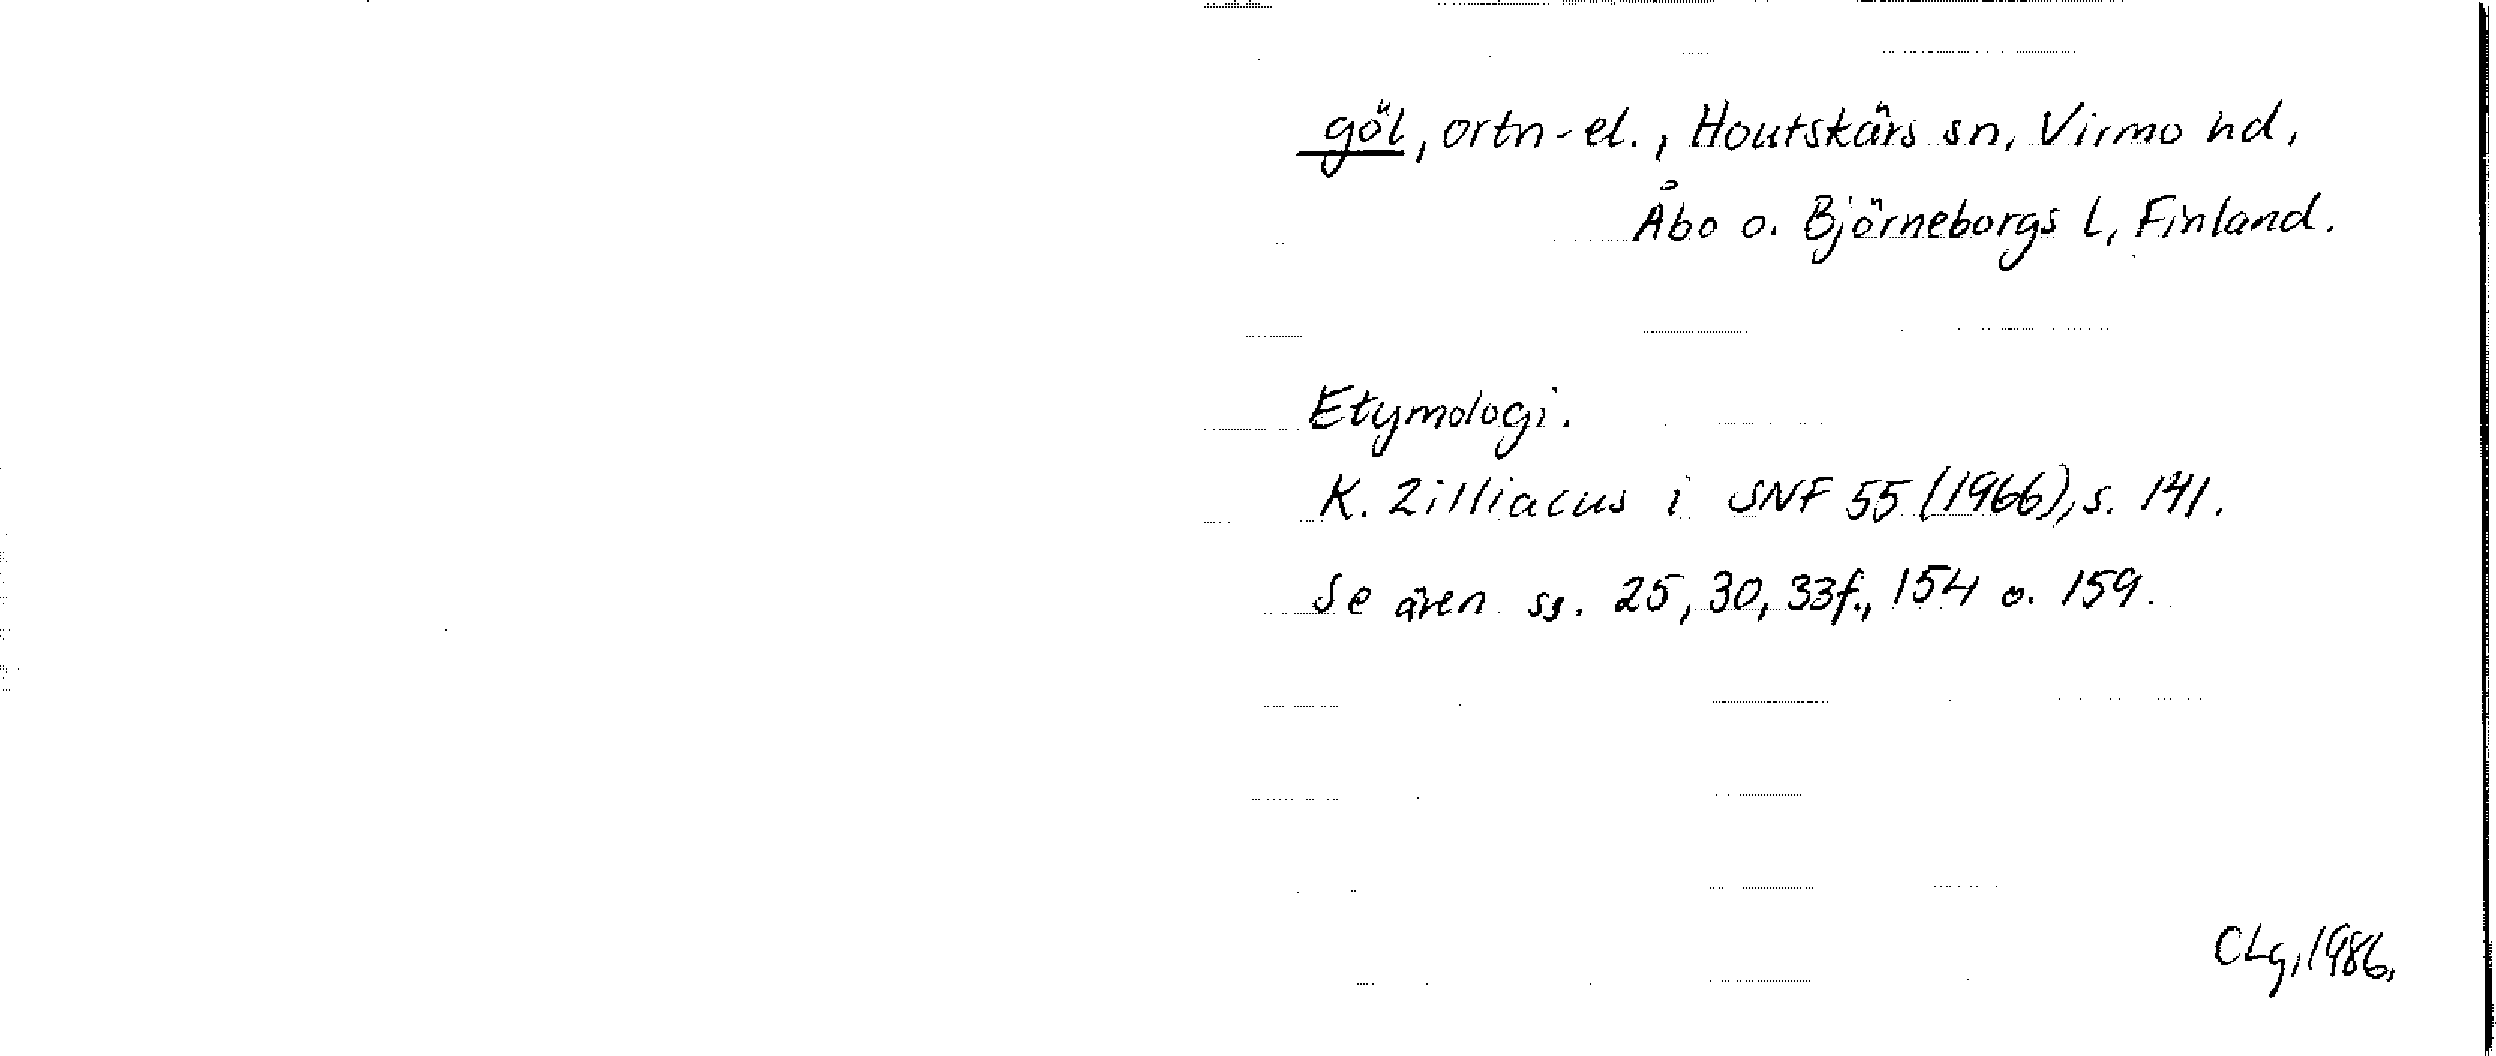 göl, ortn-el., Houtskärs sn, Virmo hd,
Åbo o. Björneborgs l, Finland.
Etymologi.
K. Zilliacus i SNF 55 (1966), s. 141.
Se även ss. 25, 30, 33f., 154 o. 159.
CLg, 1986.